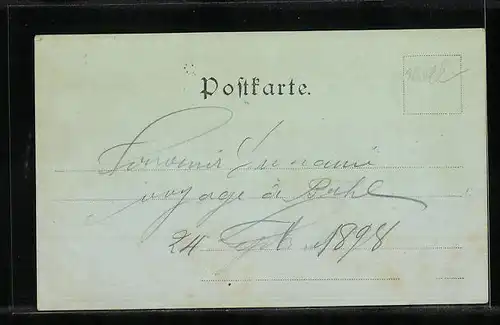 Postkarte.
Souvenir d'un ami
voyage à Bâle
24 Sept 1898